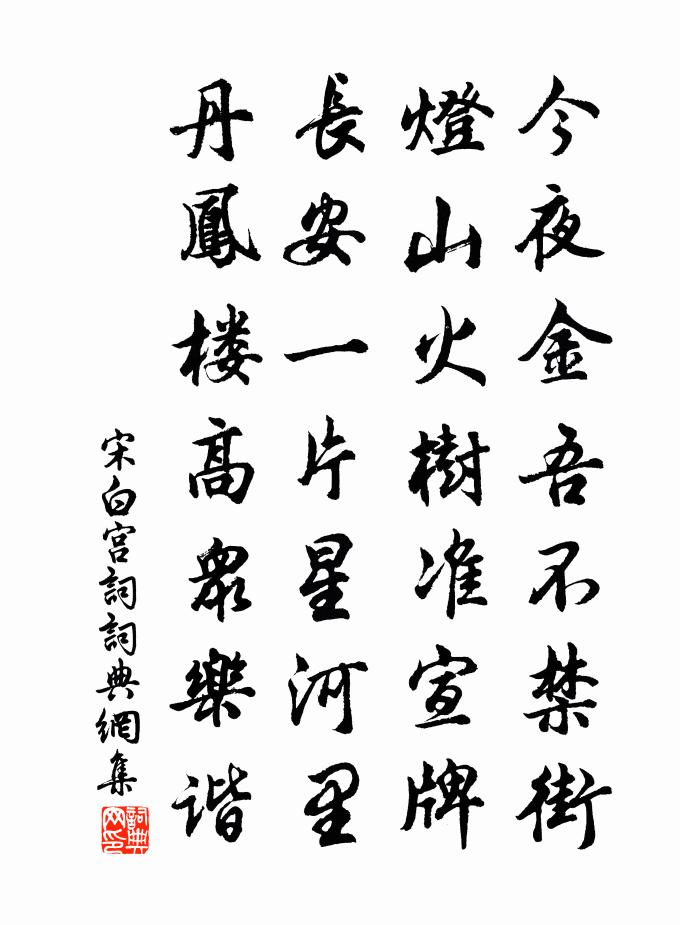 今夜金吾不禁街
燈山火樹准宣牌
長安一片星河里
丹鳳楼高眾樂谐
宋白宫詞詞典網集
詞典网印